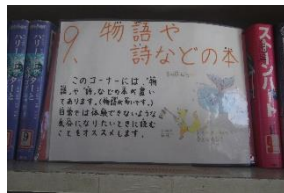 9、物語や
詩などの本
このコーナーには、"物
語、や"詩、などの本が置い
てあります。(物語が多いです。)
日常では体験できないような
気分になりたいときに読む
ことをオススメします。
ハリー・ポッターと
ハリー・ポッターと
ストーンハート
9